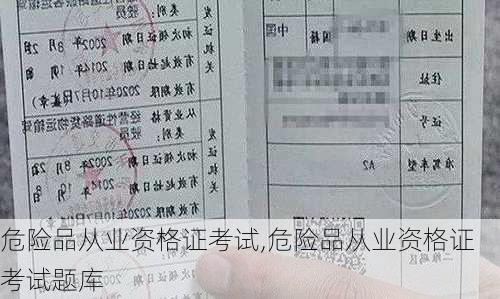 经营性道路旅客运输驾驶员
类别:
初次领证日期 2002年 8月 2
有效起始日期 2014年
有效期限 2020年10月7日(盖章)
发证机关
从业资格类别: 经营性道路货物运输驾驶员
初次领证日期 2002年 8月
有效起始日期 2014年
有效期限 2020年10月7日
发证机关
出生日期
国籍 中国
住址
证号
准驾车型 A2
危险品从业资格证考试,危险品从业资格证
考试题库